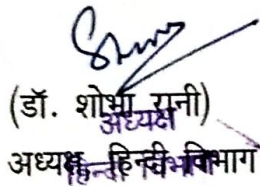 (डॉ. शोभा रानी)
अध्यक्ष
अध्यक्ष हिन्दी विभाग
हिन्दी विभाग